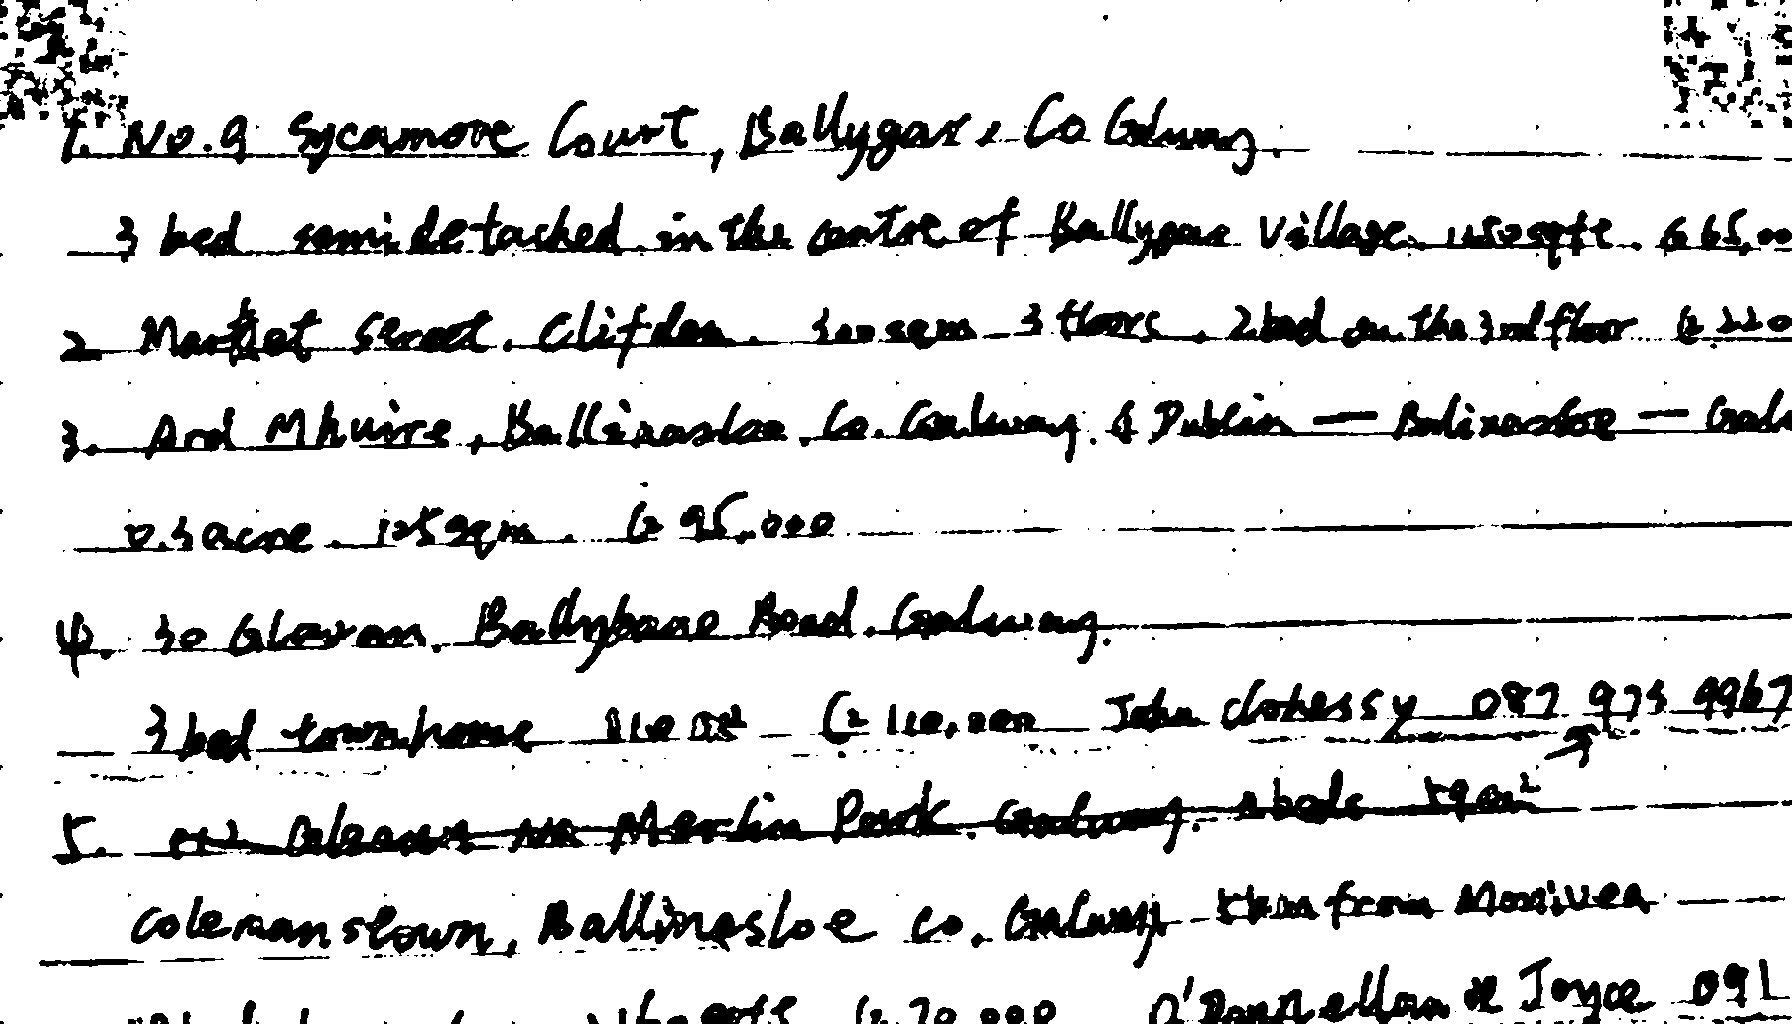 1. No.9 Sycamore Court, Ballygar, Co Galway.
3 bed semidetached in the centre of Ballygar Village. sqft. €65,00
2 Market Street. Clifden. 300 sqm 3 floors. 2bed on the 3rd floor € 220
3. Ard Mhuire, Ballinasloe, Co. Galway. Dublin — Balinasloe — Galw
0.3 acre. 125 sqm. € 95,000
4. 30 Glavan. Ballybane Road. Galway.
3 bed townhome 110 m² € 110,000 John clohessy 087 973 9967
5. Merlin Park. Galway. beds 59m²
Colemanstown, Ballinasloe co. Galway 5km from Monivea
sqft € 70,000 O'Donnellan & Joyce 091